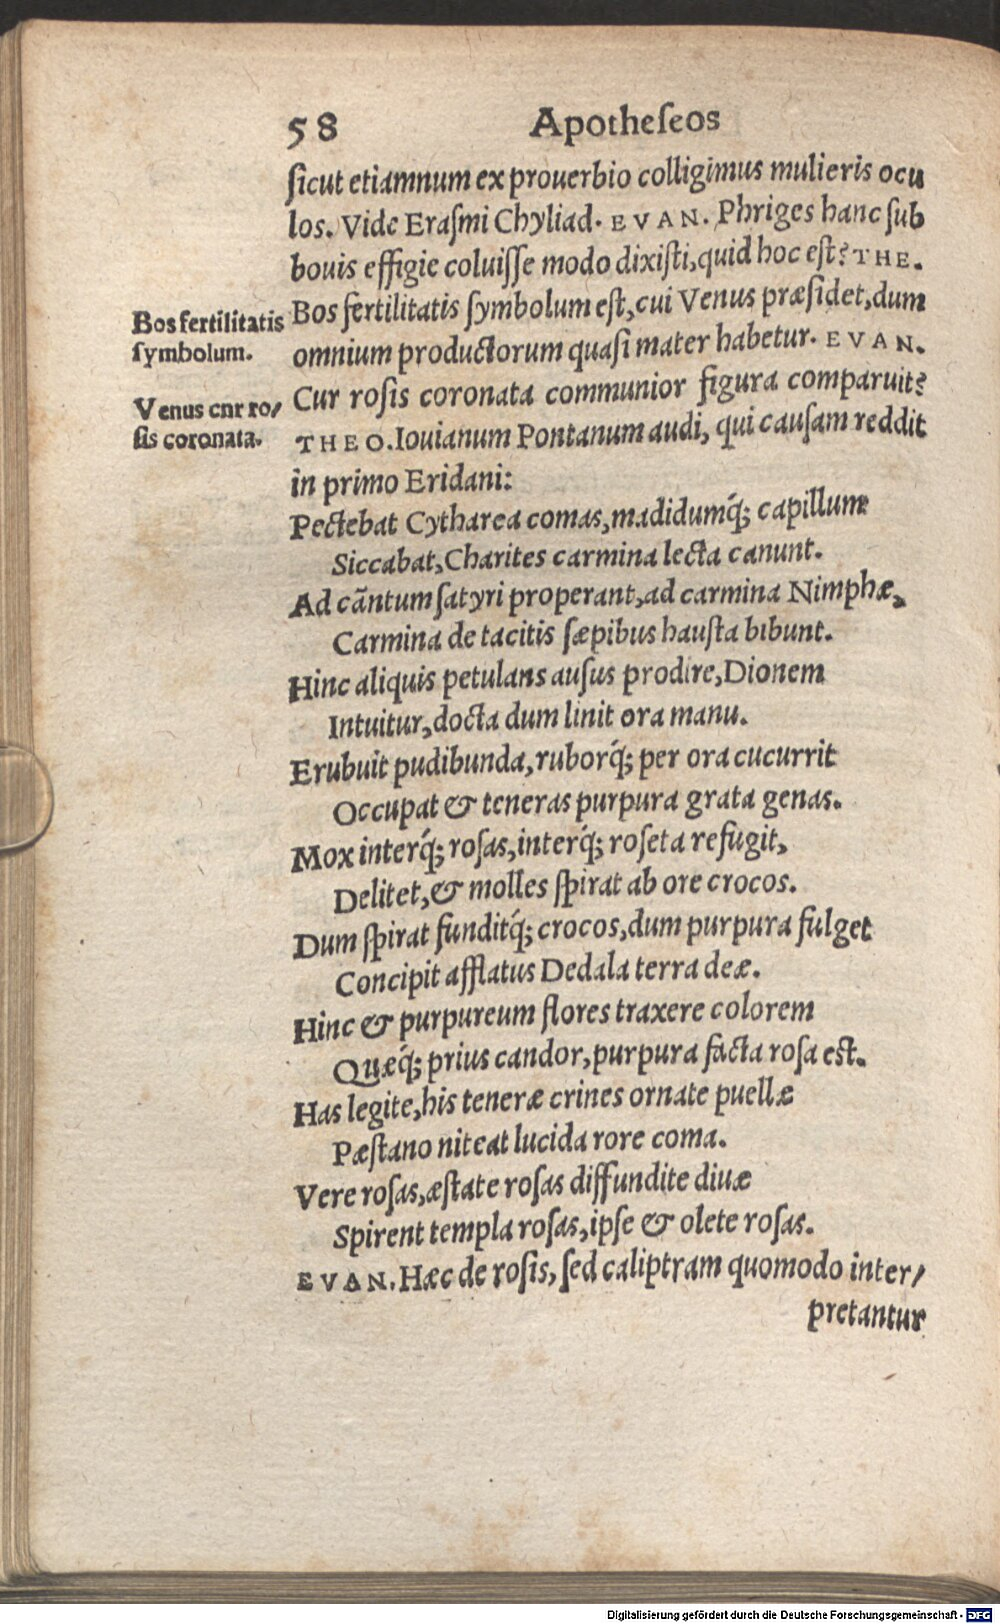 58 Apotheſeos
ſicut etiamnum ex prouerbio colligimus mulieris ocu
los. Vide Eraſmi Chyliad. EVAN. Phriges hanc ſub
bouis effigie coluiſſe modo dixiſti, quid hoc eſt? THE.
Bos fertilitatis
ſymbolum.
Bos fertilitatis ſymbolum eſt, cui Venus præſidet, dum
omnium productorum quaſi mater habetur. EVAN.
Venus cnr ro/
ſis coronata.
Cur roſis coronata communior figura comparuit?
THEO. Iouianum Pontanum audi, qui cauſam reddit
in primo Eridani:
Pectebat Cytharea comas, madidumq́; capillum
Siccabat, Charites carmina lecta canunt.
Ad cãntum ſatyri properant, ad carmina Nimphæ,
Carmina de tacitis ſæpibus hauſta bibunt.
Hinc aliquis petulans auſus prodire, Dionem
Intuitur, docta dum linit ora manu.
Erubuit pudibunda, ruborq́; per ora cucurrit
Occupat & teneras purpura grata genas.
Mox interq́; roſas, interq́; roſeta refugit,
Delitet, & molles ſpirat ab ore crocos.
Dum ſpirat funditq́; crocos, dum purpura fulget
Concipit afflatus Dedala terra deæ.
Hinc & purpureum flores traxere colorem
Quæq́; prius candor, purpura facta roſa eſt.
Has legite, his teneræ crines ornate puellæ
Pæſtano niteat lucida rore coma.
Vere roſas, æſtate roſas diffundite diuæ
Spirent templa roſas, ipſe & olete roſas.
EVAN. Hæc de roſis, ſed caliptram quomodo inter/
pretantur
Digitalisierung gefördert durch die Deutsche Forschungsgemeinschaft - DFG